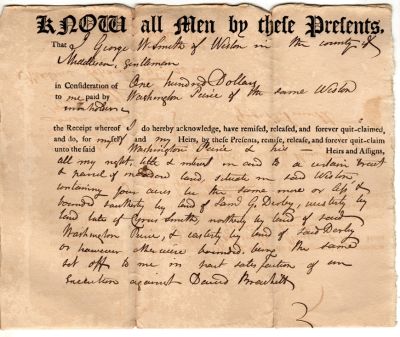 KNOW all Men by these Presents.
That I George W Smith of Weston in the county of
Middlesex, Gentleman
in Consideration of One hundred Dollars
to me paid by Washington Peirce of the same Weston
innholder
the Receipt whereof I do hereby acknowledge, have remised, released, and forever quit-claimed,
and do, for myself and my Heirs, by these Presents, remise, release, and forever quit-claim
unto the said Washington Peirce & his Heirs and Assigns,
all my right, title & interest in and to a certain tract
& parcel of meadow land, situate in said Weston
containing four acres be the same more or less &
bounded southerly by land of Saml G Derby, westerly by
land late of Cyrus Smith, northerly by land of said
Washington Peirce, & easterly by land of said Derby
or however otherwise bounded. being the same
set off to me in part satisfaction of an
execution against David Brackett